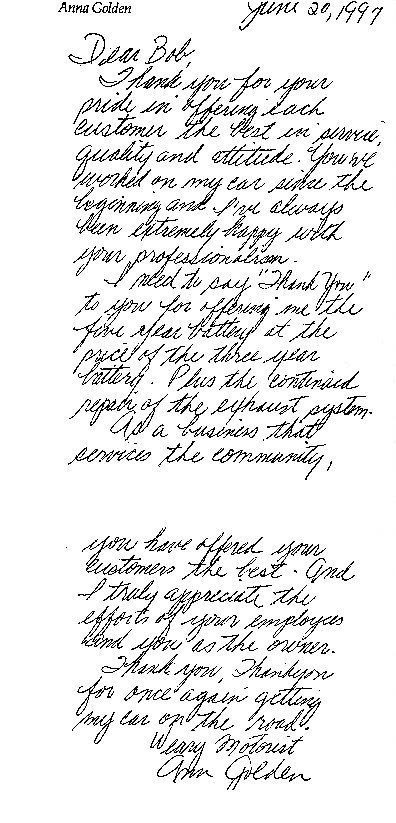 Anna Golden
June 20, 1997
Dear Bob,
Thank you for your
pride in offering each
customer the best in service,
quality and attitude. You've
worked on my car since the
beginning and I've always
been extremely happy with
your professionalism.
I need to say "Thank You"
to you for offering me the
five year battery at the
price of the three year
battery. Plus the continued
repair of the exhaust system.
As a business that
services the community,
you have offered your
customers the best. And
I truly appreciate the
efforts of your employees
and you as the owner.
Thank you, Thank you
for once again getting
my car on the road.
Weary Motorist
Ann Golden